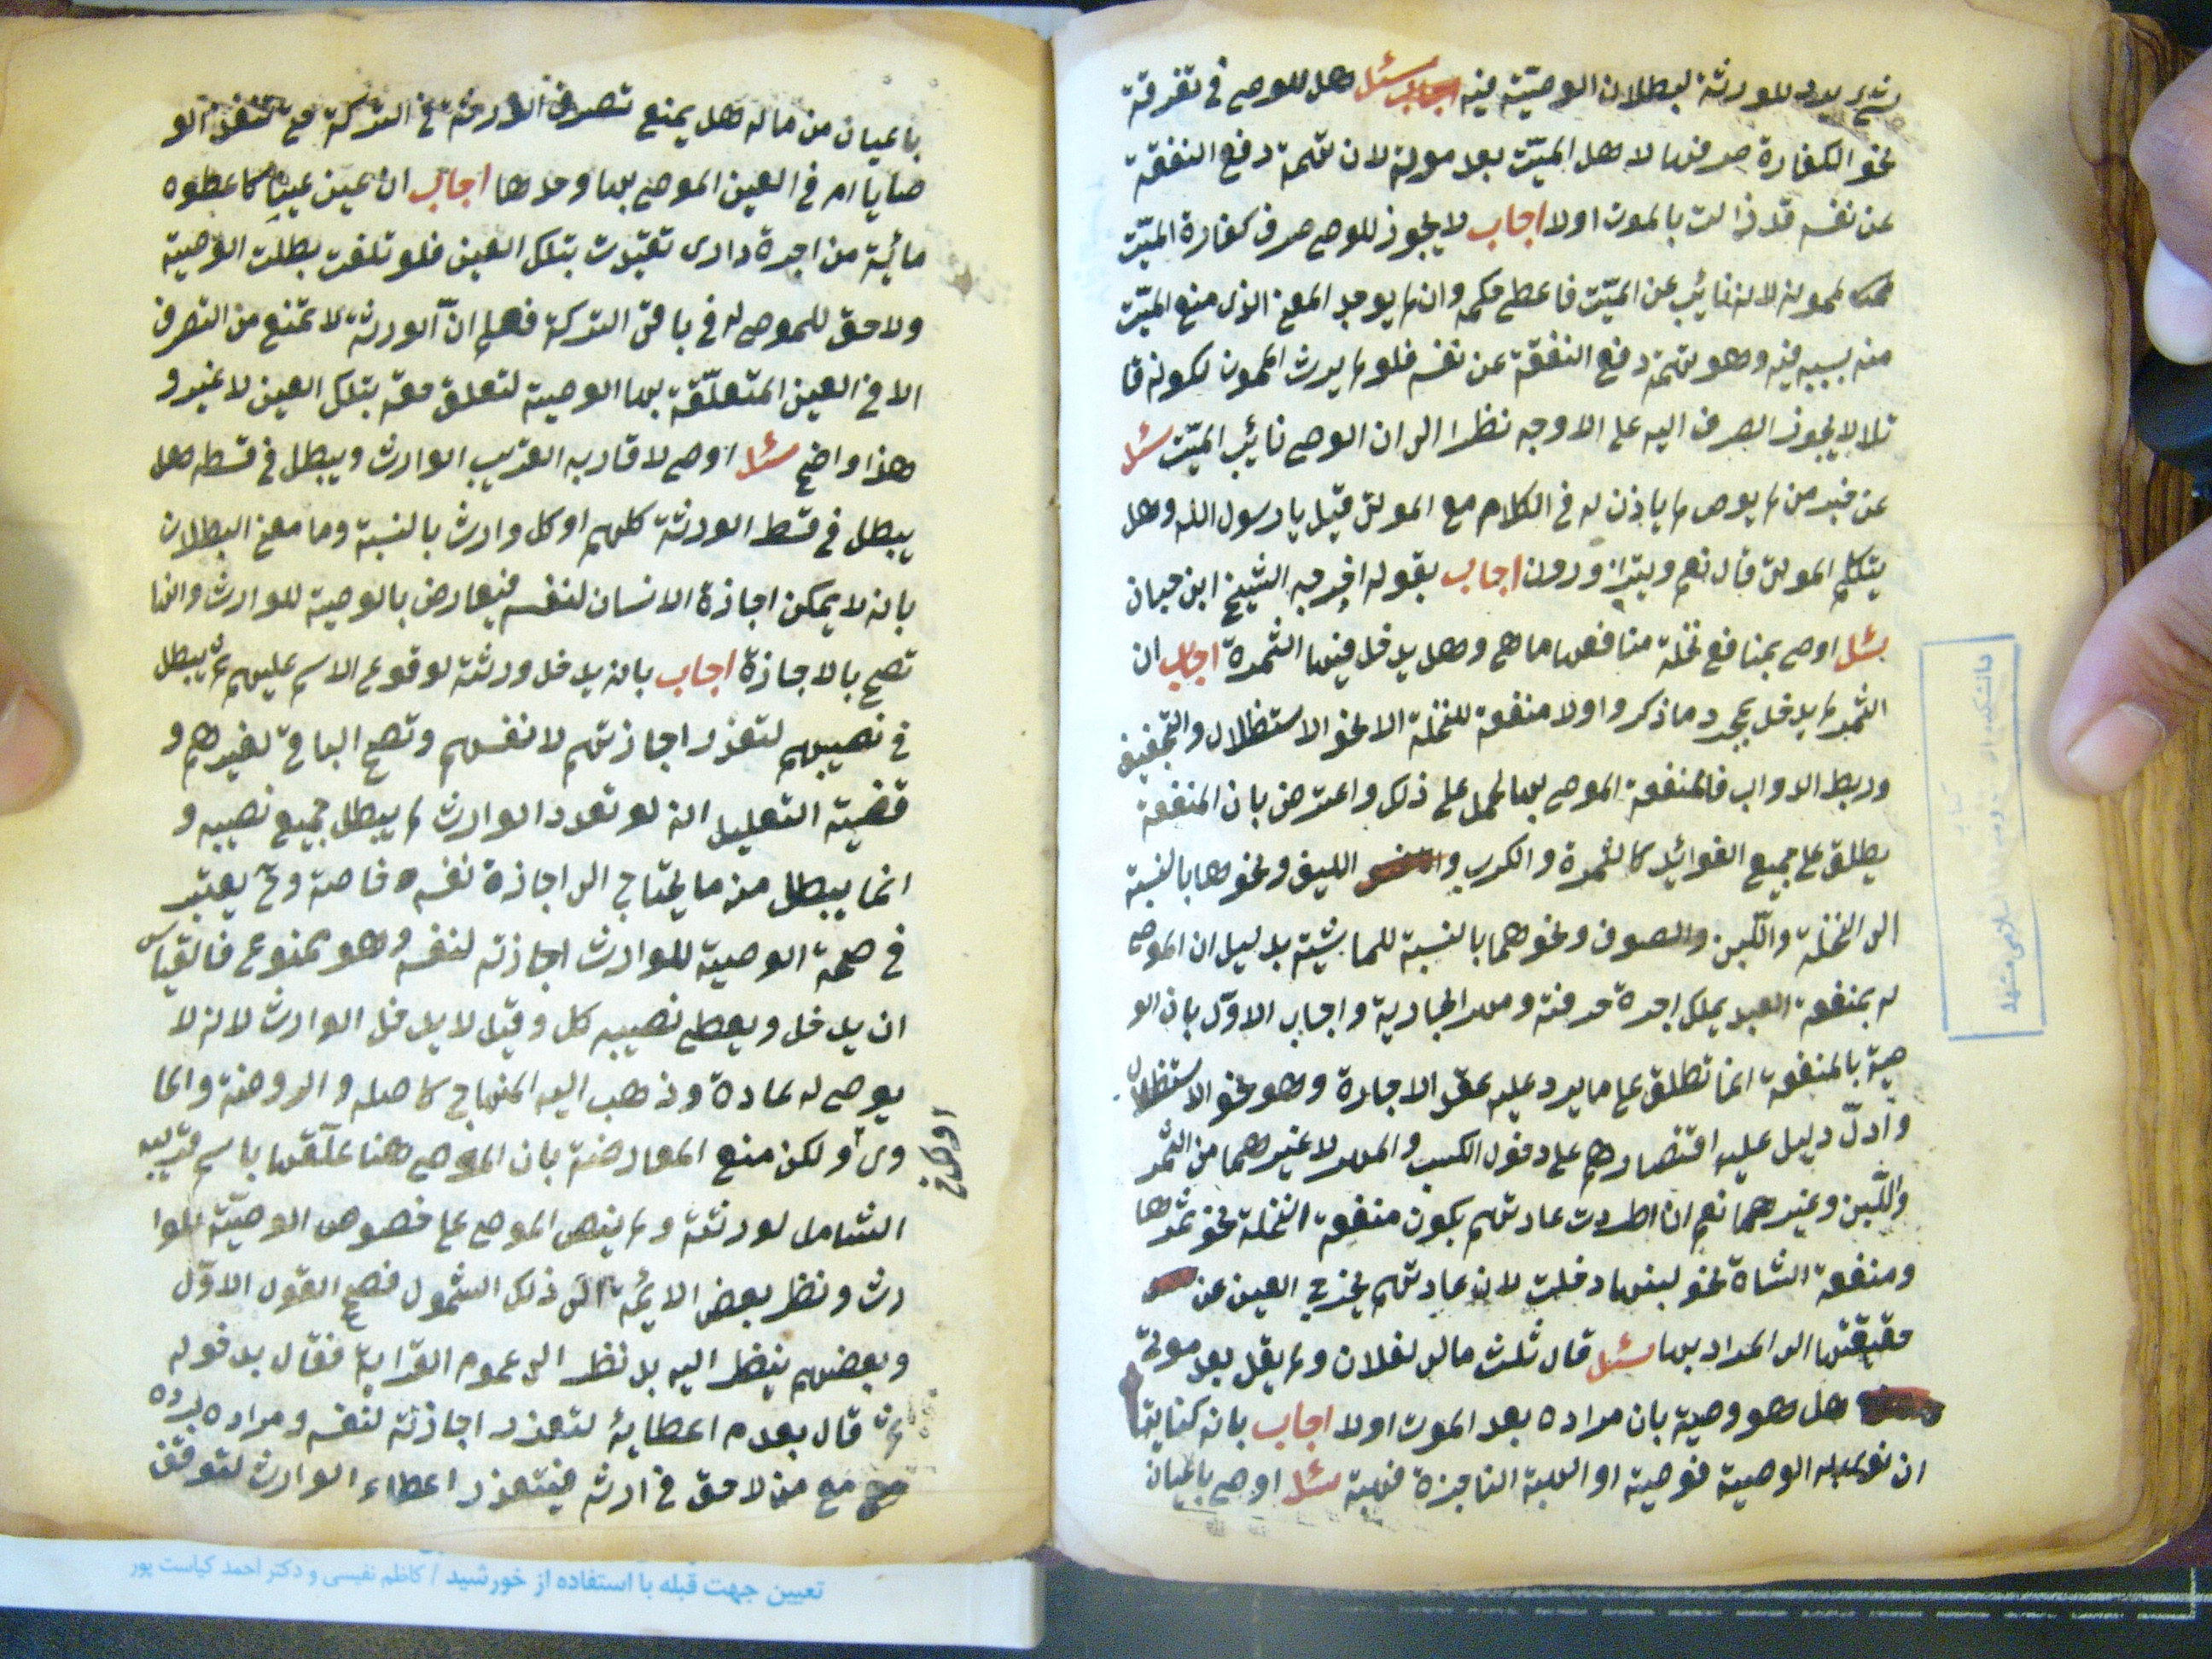 يرد للورثة لبطلان الوصيّة فيه اجاب سئل هل للوصي في تفرقة
نحو الكفارة صرفها لاهل الميّت بعد موته لان تهمة دفع النفقة
عن نفسه قد زالت بالموت اولا اجاب لا يجوز للوصي صرف كفارة الميّت
لممونه لانه نائب عن الميّت فاعطي حكمه وان لم يوجد المعنى الذي منع الميّت
منه بسببه فيه وهو تهمة دفع النفقة عن نفسه فلو لم يرث الممون لكونه قا
تلا لا يجوز الصرف اليه على الاوجه نظرا الى ان الوصي نائب الميّت سئل
عن خبر من لم يوص لم ياذن له في الكلام مع الموتى قيل يا رسول الله وهل
يتكلم الموتى قال نعم ويتزاورون اجاب بقوله اخرجه الشيخ ابن حبان
سئل اوصى بمنافع نخلة منافعها ما هي وهل يدخل فيها الثمرة اجاب ان
الثمر لم يدخل بمجرد ما ذكر والا منفعة للنخلة الا نحو الاستظلال والتجفيف
وربط الدواب فالمنفعة الموصى بها تحمل على ذلك واعترض بان المنفعة
يطلق على جميع الفوائد كالثمرة والكرب و الليف ونحوها بالنسبة
الى النخلة واللّبن والصوف ونحوهما بالنسبة للماشية بدليل ان الموصى
له بمنفعة العبد يملك اجرة حرفته ومهر الجارية واجاب الاوّل بان الو
صية بالمنفعة انما تطلق على ما يرد عليه عقد الاجارة وهو نحو الاستظلال
وادلّ دليل عليه اقتصارهم على دخول الكسب والمهر لا غيرهما من الثمر
واللّبن وغيرهما نعم ان اطردت عادتهم بكون منفعة النخلة نحو ثمرها
ومنفعة الشاة نحو لبنها دخلت لان عادتهم يخرج العين عن
حقيقتها الى المراد بها سئل قال ثلث مالي لفلان ولم يقل بعد موتي
هل هو وصية بان مراده بعد الموت اولا اجاب بانه كناية فا
ان نوى به الوصية فوصية او الهبة الناجزة فهبة سئل اوصى باعيان
باعيان من ماله هل يمنع تصرف الورثة في التركة حتى تنفذ الو
صايا ام في العين الموصى بها وحدها اجاب ان عين عينا كاعطوه
مائية من اجرة داري تقيّدت بتلك العين فلو تلفت بطلت الوصية
ولا حق للموصى له في باقي التركة فعلم انّ الورثة لا تمنع من التصرف
الا في العين المتعلّقة بها الوصية لتعلق حقه بتلك العين لا غير و
هذا واضح سئل اوصى لاقاربه القريب الوارث ويبطل في قسطه هل
يبطل في قسط الورثة كلهم او كل وارث بالنسبة وما معنى البطلان
بانه لا يمكن اجازة الانسان لنفسه فيعارض بالوصية للوارث وانها
تصح بالاجازة اجاب بانه يدخل ورثته لوقوع الاسم عليهم ثم يبطل
في نصيبهم لتعذر اجازتهم لانفسهم وتصح الباقي لغيرهم و
قضية التعليل انه لو تعدد الوارث لم يبطل جميع نصيبه و
انما يبطل منه ما يحتاج الى اجازة نفسه خاصة وثم يعتبر
في صحة الوصية للوارث اجازته لنفسه وهو ممنوع فالقياس
ان يدخل ويعطي نصيبه كل وقيل لا يدخل الوارث لانه لا
يوصى له عادة وذهب اليه المنهاج كاصله والروضة والحا
وى ولكن منع المعارضة بان الموصي هنا علّقها باسم قريبه
الشامل لورثته ولم ينص الموصي على خصوص الوصيّة للوا
رث ونظر بعض الائمة الى ذلك الشمول فصح القول الاوّل
وبعضهم ينظر اليه بل نظر الى عموم القرابة فقال بدخوله
ثم قال بعدم اعطائه لتعذر اجازته لنفسه ومراده برده
مع من لا حق في ارثه فيتعذر اعطاء الوارث لتوقف
تعیین جهت قبله با استفاده از خورشید / کاظم نفیسی و دکتر احمد کیاست پور